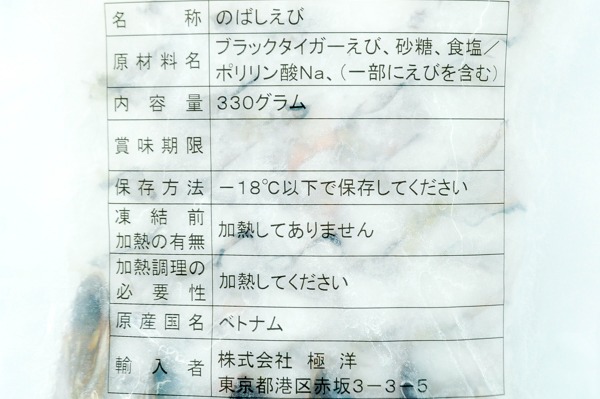 名称 のばしえび
原材料名 ブラックタイガーえび、砂糖、食塩／
ポリリン酸Na、（一部にえびを含む）
内容量 330グラム
賞味期限
保存方法 －18℃以下で保存してください
凍結前
加熱の有無 加熱してありません
加熱調理の
必要性 加熱してください
原産国名 ベトナム
輸入者 株式会社 極洋
東京都港区赤坂3－3－5